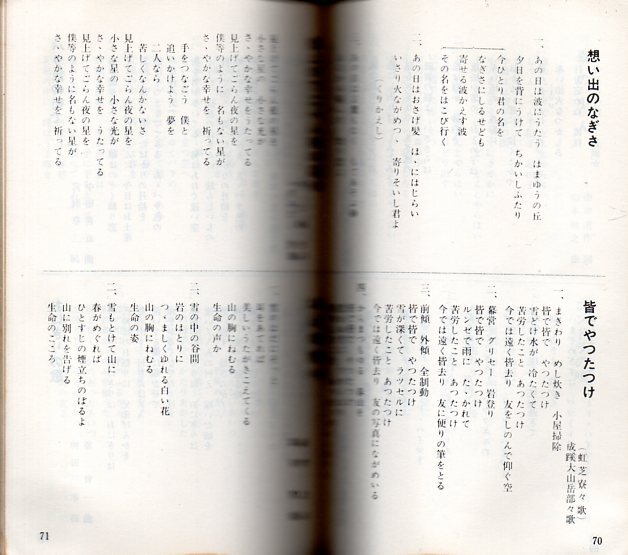 想い出のなぎさ
一、
あの日は波にうたう はまゆうの丘
夕日を背にうけて ちかいしふたり
今ひとり君の名を
なぎさにしるせども
寄せる波かえす波
その名をはこび行く
二、
あの日はおさげ髪 ほゝにはじらい
いさり火ながめつゝ 寄りそいし君よ
（くりかえし）
皆でやつたつけ
（虹芝寮々歌）
成蹊大山岳部々歌
一、
まきわり めし炊き 小屋掃除
皆で皆で やつたつけ
雪どけ水が 冷たくて
苦労したこと あつたつけ
今では遠く皆去り 友をしのんで仰ぐ空
二、
幕営 グリセー 岩登り
皆で皆で やつたつけ
ルンゼで雨に たゝかれて
苦労したこと あつたつけ
今では遠く皆去り 友に便りの筆をとる
三、
前傾 外傾 全制動
皆で皆で やつたつけ
雪が深くて ラツセルに
苦労したこと あつたつけ
今では遠く皆去り 友の写真にながめいる
四、
70
小さな星の 小さな光が
さゝやかな幸せを うたってる
見上げてごらん夜の星を
僕等のように 名もない星が
さゝやかな幸せを 祈ってる
手をつなごう 僕と
追いかけよう 夢を
二人なら
苦しくなんかないさ
見上げてごらん夜の星を
小さな星の 小さな光が
さゝやかな幸せを うたってる
見上げてごらん夜の星を
僕等のように名もない星が
さゝやかな幸せを 祈ってる
美しいうたがきこえてくる
山の胸にねむる
生命の声か
二、
雪の中の谷間
岩のほとりに
つゝましくゆれる白い花
山の胸にねむる
生命の姿
三、
雪もとけて山に
春がめぐれば
ひとすじの煙立ちのぼるよ
山に別れを告げる
生命のこころ
71